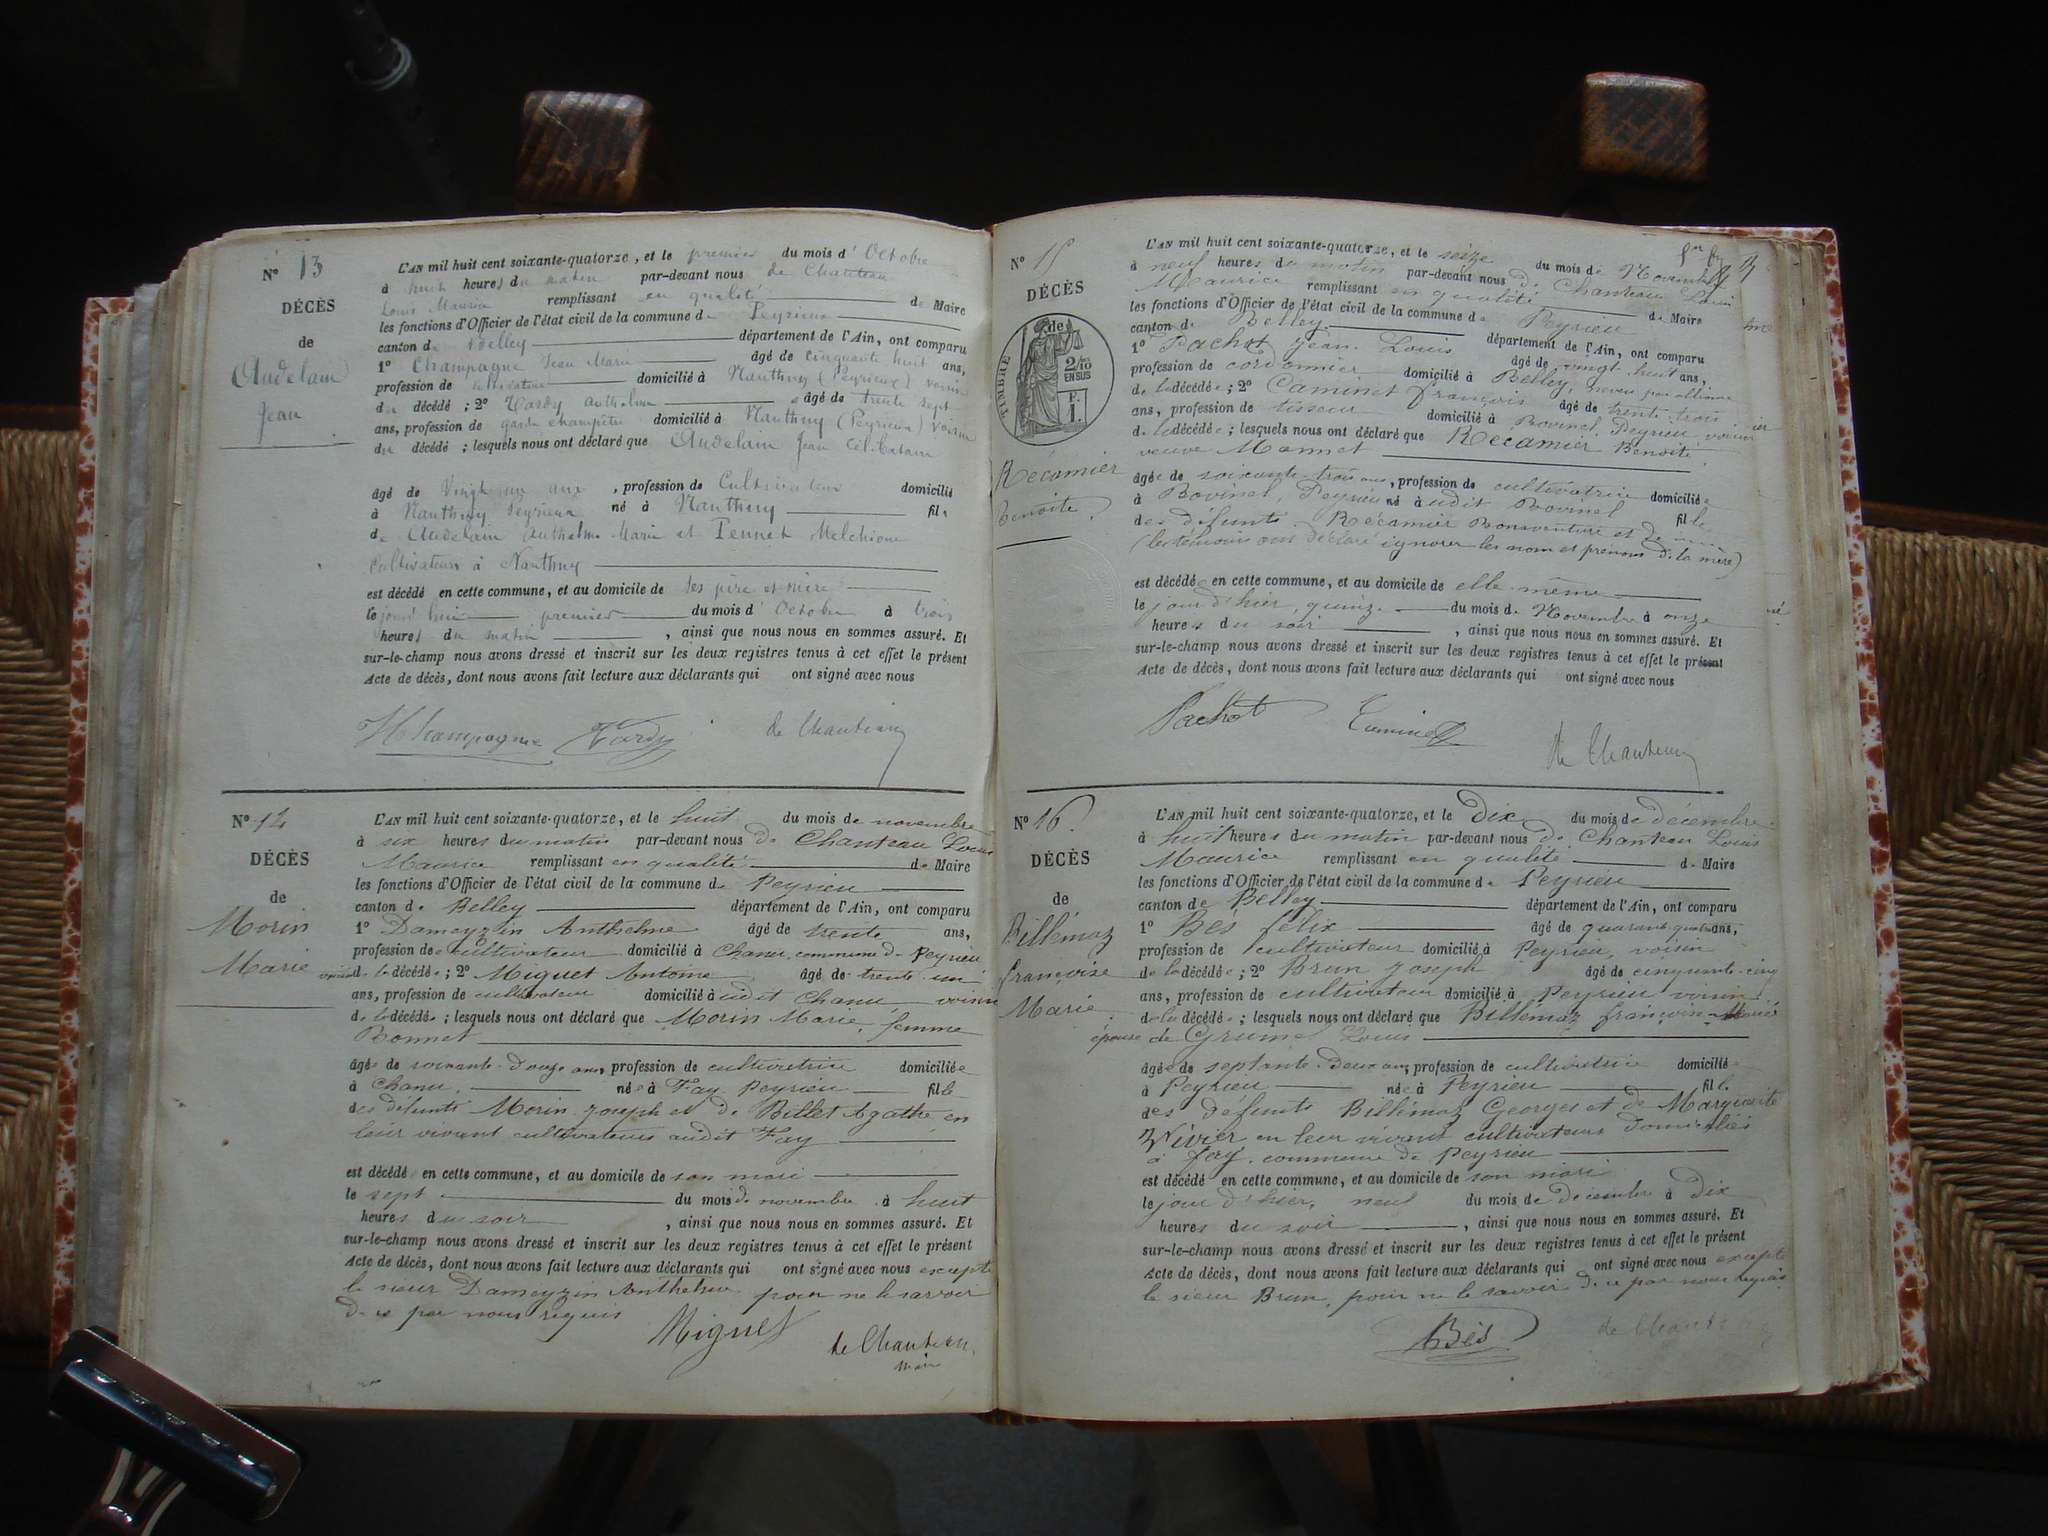 N° 13
DÉCÈS
de
Audelain
Jean
L'AN mil huit cent soixante-quatorze, et le premier du mois d'Octobre
à huit heures du matin par-devant nous de Chanteau
Louis Maurice remplissant en qualité de Maire
les fonctions d'Officier de l'état civil de la commune de Peyrieu
canton de Belley département de l'Ain, ont comparu
1° Champagne Jean Marie âgé de cinquante huit ans,
profession de cultivateur domicilié à Nanthuy (Peyrieux) voisin
du décédé ; 2° Tardy Anthelme âgé de trente sept
ans, profession de garde champêtre domicilié à Nanthuy (Peyrieux) voisin
du décédé ; lesquels nous ont déclaré que Audelain Jean célibataire
âgé de Vingt ans, profession de Cultivateur domicilié
à Nanthuy Peyrieux né à Nanthuy fils
de Audelain Anthelme Marie et Pennet Melchione
Cultivateurs à Nanthuy
est décédé en cette commune, et au domicile de ses père et mère
le jourd'hui premier du mois d'Octobre à trois
heures du matin , ainsi que nous nous en sommes assuré. Et
sur-le-champ nous avons dressé et inscrit sur les deux registres tenus à cet effet le présent
Acte de décès, dont nous avons fait lecture aux déclarants qui ont signé avec nous
Champagne Tardy de Chanteau
N° 14
DÉCÈS
de
Morin
Marie
L'AN mil huit cent soixante-quatorze, et le huit du mois de novembre
à six heures du matin par-devant nous de Chanteau Louis
Maurice remplissant en qualité de Maire
les fonctions d'Officier de l'état civil de la commune de Peyrieu
canton de Belley département de l'Ain, ont comparu
1° Dameyzin Anthelme âgé de trente ans,
profession de cultivateur domicilié à Chanu, commune de Peyrieu
voisin de la décédée ; 2° Miguet Antoine âgé de trente un
ans, profession de cultivateur domicilié à udit Chanu voisin
de la décédée ; lesquels nous ont déclaré que Morin Marie, femme
Bonnet
âgée de soixante-douze ans, profession de cultivatrice domiciliée
à Chanu, née à Fay Peyrieu fille
des défunts Morin Joseph et de Billet Agathe, en
leur vivant cultivateurs audit Fay
est décédé en cette commune, et au domicile de son mari
le sept du mois de novembre à huit
heures du soir , ainsi que nous nous en sommes assuré. Et
sur-le-champ nous avons dressé et inscrit sur les deux registres tenus à cet effet le présent
Acte de décès, dont nous avons fait lecture aux déclarants qui ont signé avec nous excepté
le sieur Dameyzin Anthelme pour ne le savoir
de ce par nous requis
Miguet de Chanteau
maire
N° 15
DÉCÈS
de
TIMBRE
2/10
EN SUS
F.
1.
Récamier
Benoite
L'AN mil huit cent soixante-quatorze, et le seize du mois de Novembre
à neuf heures du matin par-devant nous de Chanteau Louis
Maurice remplissant en qualité de Maire
les fonctions d'Officier de l'état civil de la commune de Peyrieu
canton de Belley département de l'Ain, ont comparu
1° Pachot Jean-Louis âgé de vingt-huit ans,
profession de cordonnier domicilié à Belley, neveu par alliance
de la décédée ; 2° Caminet françois âgé de trente-trois
ans, profession de tisseur domicilié à Bovinel, Peyrieu voisin
de la décédée ; lesquels nous ont déclaré que Récamier Benoite
veuve Monnet
âgée de soixante-trois ans, profession de cultivatrice domiciliée
à Bovinel, Peyrieu née à udit Bovinel fille
des défunts Récamier Bonaventure et de
(les témoins ont déclaré ignorer les nom et prénoms de la mère)
est décédé en cette commune, et au domicile de elle-même
le jour d'hier, quinze du mois de Novembre à onze
heures du soir , ainsi que nous nous en sommes assuré. Et
sur-le-champ nous avons dressé et inscrit sur les deux registres tenus à cet effet le présent
Acte de décès, dont nous avons fait lecture aux déclarants qui ont signé avec nous
Pachot Caminet de Chanteau
N° 16
DÉCÈS
de
Billémaz
françoise
Marie
L'AN mil huit cent soixante-quatorze, et le Dix du mois de décembre
à huit heures du matin par-devant nous de Chanteau Louis
Maurice remplissant en qualité de Maire
les fonctions d'Officier de l'état civil de la commune de Peyrieu
canton de Belley département de l'Ain, ont comparu
1° Bés félix âgé de quarante-quatre ans,
profession de cultivateur domicilié à Peyrieu, voisin
de la décédée ; 2° Brun Joseph âgé de cinquante-cinq
ans, profession de cultivateur domicilié à Peyrieu voisin
de la décédée ; lesquels nous ont déclaré que Billémaz françoise Marie
épouse de Grumel Louis
âgée de septante-deux ans, profession de cultivatrice domiciliée
à Peyrieu née à Peyrieu fille
des défunts Billémaz Georges et de Marguerite
Vivier en leur vivant cultivateurs domiciliés
à fay, commune de Peyrieu
est décédé en cette commune, et au domicile de son mari
le jour d'hier, neuf du mois de Décembre à Dix
heures du soir , ainsi que nous nous en sommes assuré. Et
sur-le-champ nous avons dressé et inscrit sur les deux registres tenus à cet effet le présent
Acte de décès, dont nous avons fait lecture aux déclarants qui ont signé avec nous excepté
le sieur Brun, pour ne le savoir de ce par nous requis
Bés de Chanteau